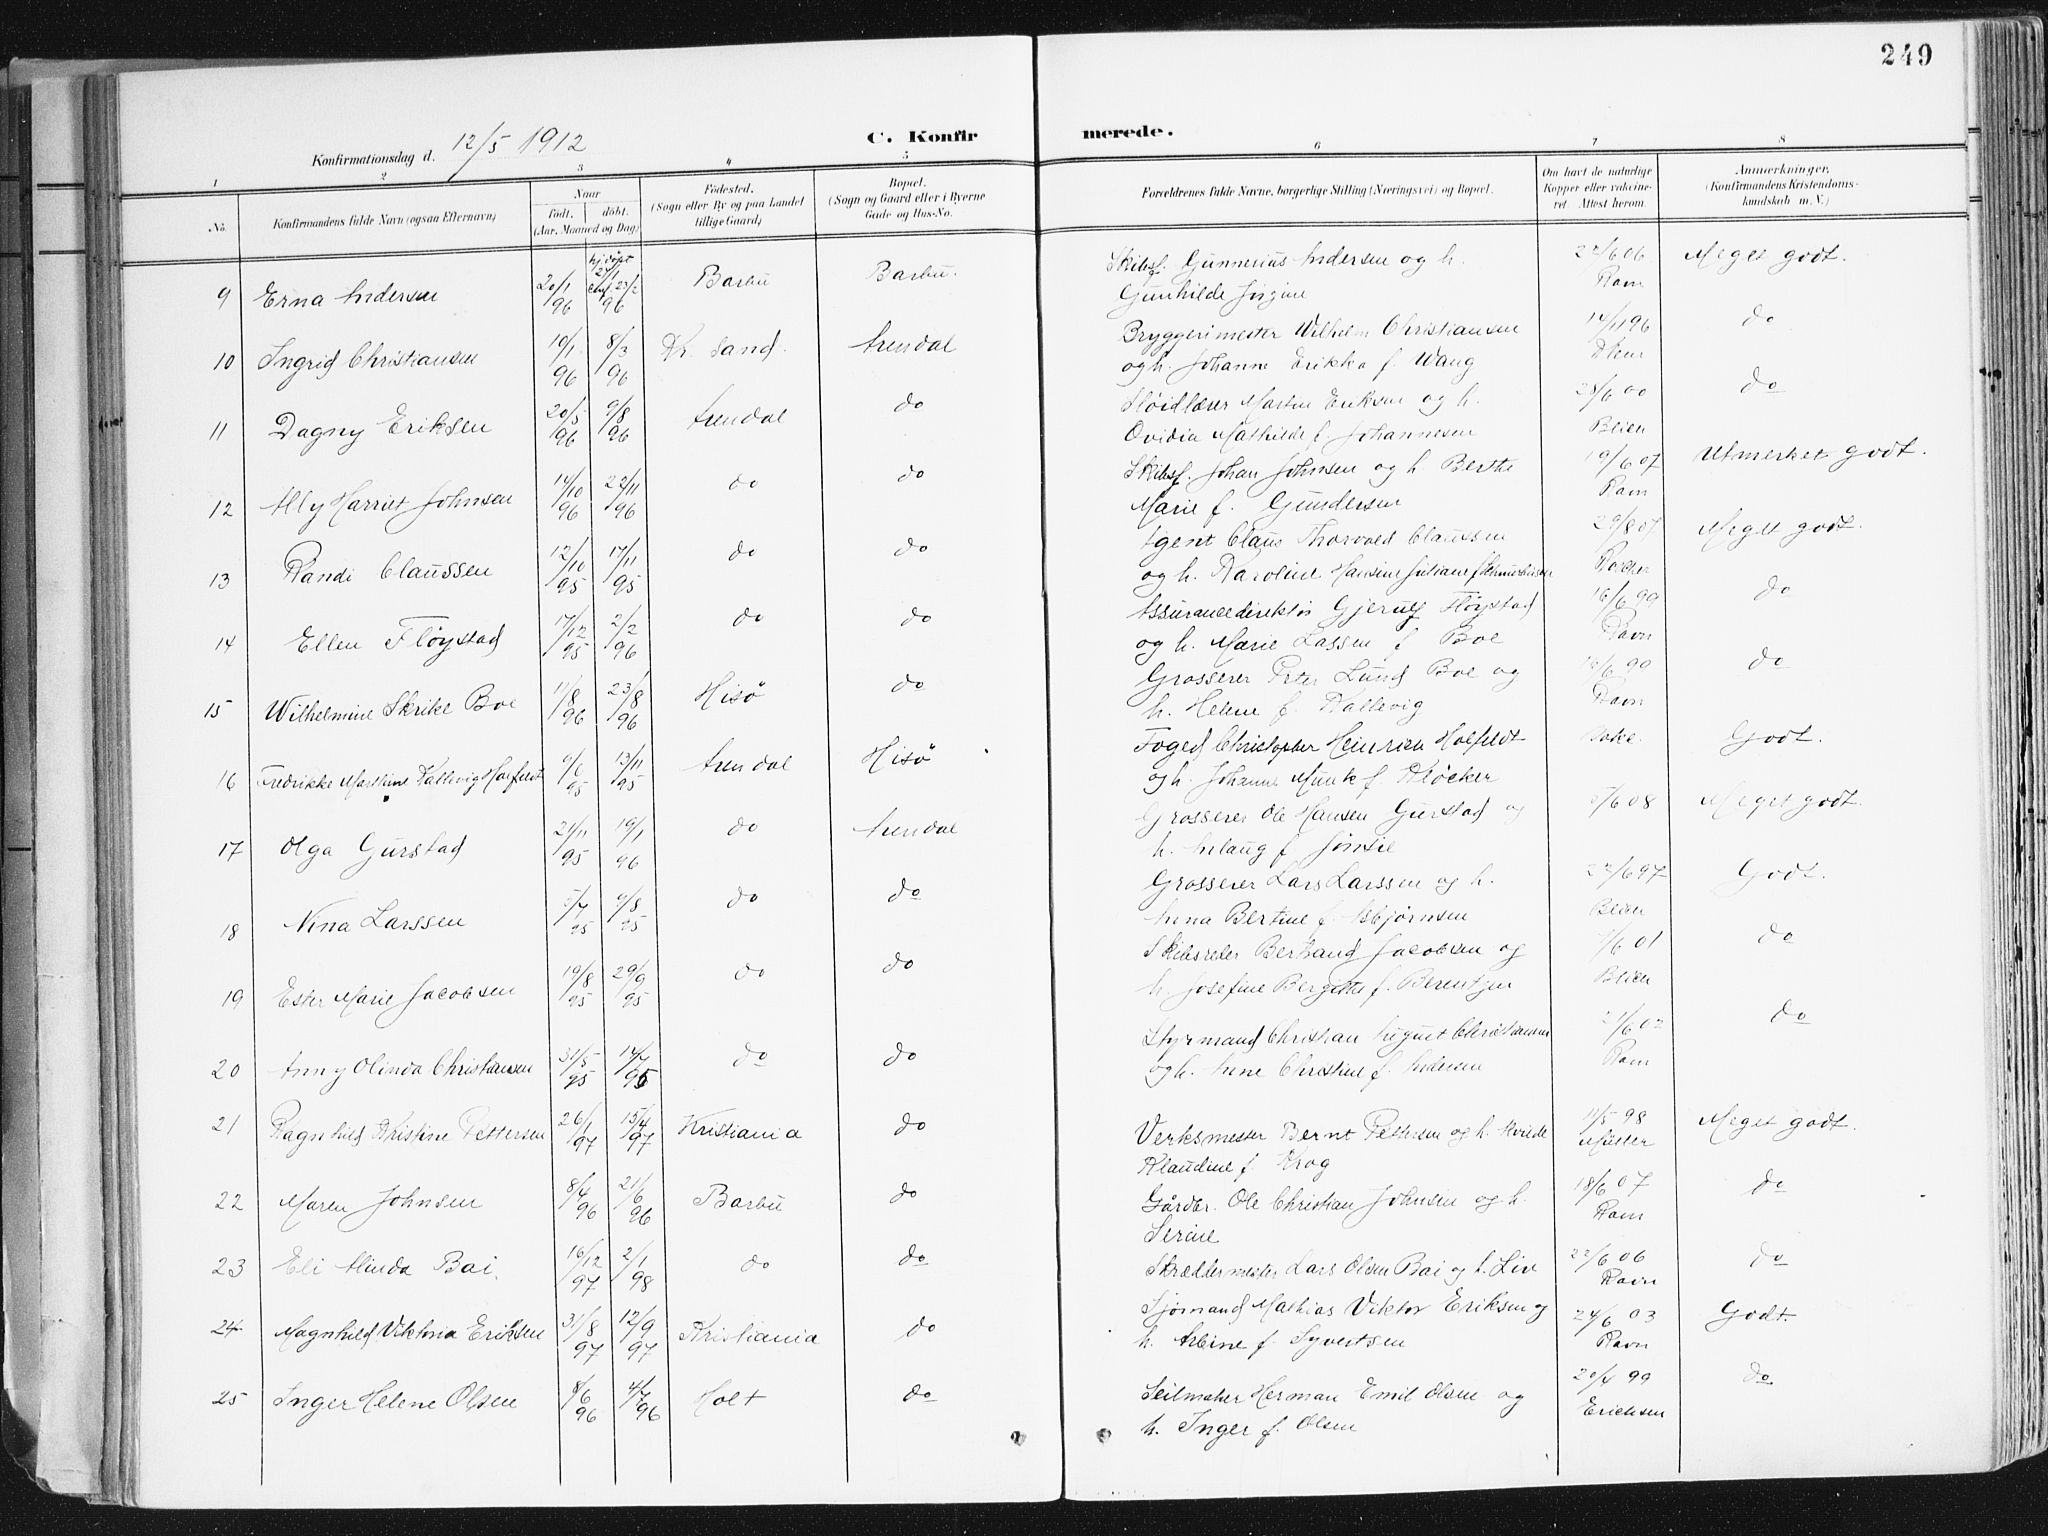 249
Konfirmationsdag d. 12/5 1912
C. Konfirmerede.
1 2 3 4 5 6 7 8
No.
Konfirmandens fulde Navn (ogsaa Efternavn)
Naar født, døbt. (Aar, Maaned og Dag)
Fødested. (Sogn eller By og paa Landet tillige Gaard)
Bopæl. (Sogn og Gaard eller i Byerne Gade og Hus-No.
Forældrenes fulde Navne, borgerlige Stilling (Næringsvei) og Bopæl.
Om havt de naturlige Kopper eller vakcineret. Attest herom.
Anmærkninger. (Konfirmandens Kristendomskundskab m. V.)
9 Erna Andersen 20/1 96 hj.døpt 27/1 23/2 96 Barbu Barbu. Skibsf. Gunnerius Andersen og h. 22/6 06 Meget godt.
Gunhilde Jørgine Ravn
10 Ingrid Christiansen 10/1 96 8/3 96 Kr.sand. Arendal Bryggerimester Wilhelm Christiansen 14/11 96 do
og h. Johanne Erikka f. Wang
11 Dagny Eriksen 20/5 96 9/8 96 Arendal do Sløidlærer Martin Eriksen og h. 28/6 00 do
Ovidia Mathilde f. Johannesen Blien
12 Ally Harriet Johnsen 14/10 96 22/11 96 do do Skibsf. Johan Johnsen og h. Berthe 19/6 07 Utmerket godt.
Marie f. Gundersen Ravn
13 Randi Claussen 12/10 95 17/11 95 do do Agent Claus Thorvald Claussen 29/8 07 Meget godt.
og h. Karoline Hansine Juliane f.
14 Ellen Fløystad 17/12 95 2/2 96 do do Assurancedirektør Gjerulf Fløystad 16/6 99 do
og h. Marie Lassen f. Boe Ravn
15 Wilhelmine Skrike Boe 11/8 96 23/8 96 Hisø do Grosserer Peter Lund Boe og 16/6 99 do
h. Helene f. Kallevig Ravn
16 Fredrikke Marthine Kallevig Holfeldt 9/6 95 13/11 95 Arendal Hisø Foged Christopher Heinrich Holfeldt Godt.
og h. Johanne Munk f. Kløcker
17 Olga Gurstad 21/11 95 19/1 96 do Arendal Grosserer Ole Hansen Gurstad og 5/6 08 Meget godt.
h. Aslaug f.
18 Nina Larssen 5/7 95 9/8 95 do do Grosserer Lars Larssen og h. 22/6 97 Godt.
Anna Bertine f. Asbjørnsen Blien
19 Ester Marie Jacobsen 19/8 95 29/9 95 do do Skibsreder Bertrand Jacobsen og 7/6 01 do
h. Josefine Bergitte f. Berentzen Blien
20 Anny Olinda Christiansen 31/5 95 14/7 95 do do Styrmand Christian August Christiansen 21/6 02 do
og h. Anne Christine f. Andersen Ravn
21 Ragnhild Kristine Pettersen 26/1 97 15/4 97 Kristiania do Verksmester Bernt Pettersen og h. Alvilde 11/5 98 Meget godt.
Klaudine f. Krog Müller
22 Maren Johnsen 8/4 96 21/6 96 Barbu do Gårdbr. Ole Christian Johnsen og h. 18/6 07 do
Serine Ravn
23 Eli Alinda Bai. 16/12 97 2/1 98 do do Skræddermester Lars Olsen Bai og h. Liv 22/6 06 do
Ravn
24 Magnhild Viktoria Eriksen 31/8 97 12/9 97 Kristiania do Sjømand Mathias Viktor Eriksen og 24/6 03 Godt.
h. Albine f. Syvertsen Ravn
25 Inger Helene Olsen 8/6 96 4/7 96 Holt do Seilmaker Herman Emil Olsen og 20/4 99 do
h. Inger f. Olsen Erichsen